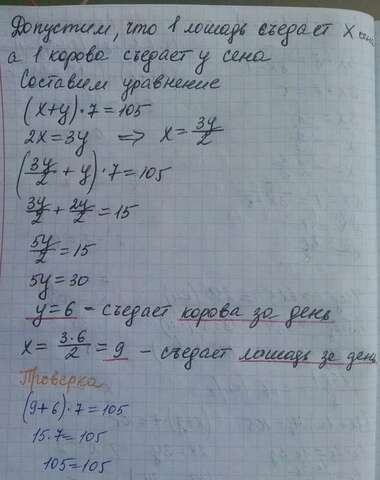 Допустим, что 1 лошадь съедает x сена
а 1 корова съедает y сена
Составим уравнение
(x+y)·7=105
2x=3y => x=3y/2
(3y/2 + y)·7=105
3y/2 + 2y/2 = 15
5y/2 = 15
5y=30
y=6 - съедает корова за день
x= 3·6/2 = 9 - съедает лошадь за день
Проверка
(9+6)·7=105
15·7=105
105=105